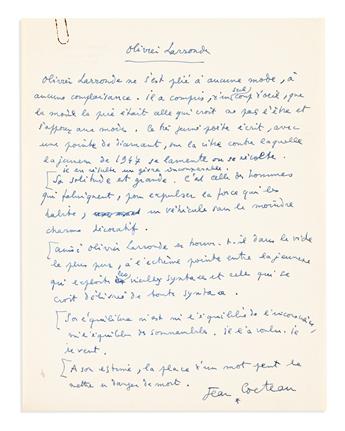 Olivier Larronde
Olivier Larronde ne s'est plié à aucune mode, à
aucune complaisance. Il a compris, d'un seul coup d'oeil, que
la mode la pire était celle qui croit ne pas l'être et
s'oppose aux modes. Le très jeune poète écrit, avec
une pointe de diamant, sur la vitre contre laquelle
la jeunesse de 1947 se lamente ou se révolte.
Il en résulte un givre incomparable.
[Sa solitude est grande. C'est celle des hommes
qui fabriquent, pour expulser la force qui les
habite, un véhicule sans le moindre
charme décoratif.
[Ainsi Olivier Larronde se trouve-t-il dans le vide
le plus pur, à l'extrême pointe entre la jeunesse
qui exploite les vieilles syntaxes et celle qui se
croit délivrée de toute syntaxe.
[Son équilibre n'est ni l'équilibre de l'inconscience,
ni l'équilibre de somnambule. Il l'a voulu. Il
le veut.
[A son estime, la place d'un mot peut la
mettre en danger de mort.
Jean Cocteau